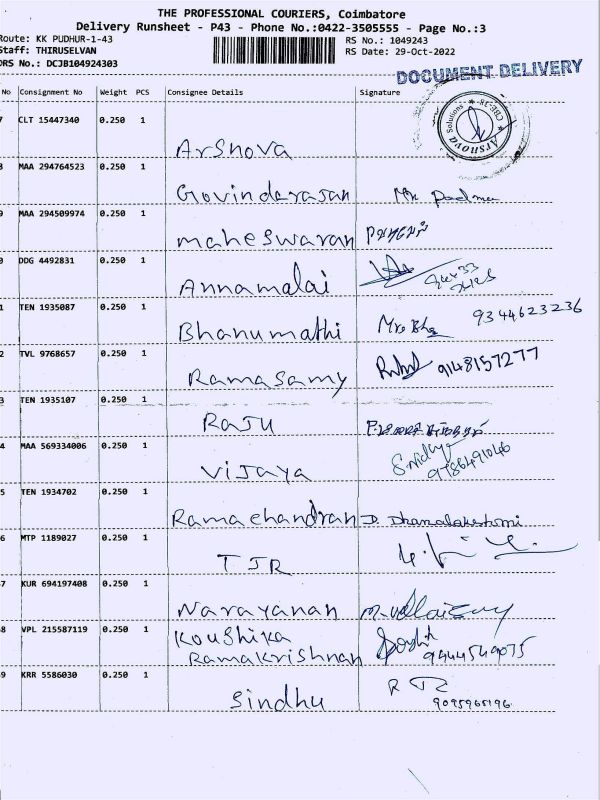 THE PROFESSIONAL COURIERS, Coimbatore
Delivery Runsheet - P43 - Phone No.:0422-3505555 - Page No.:3
Route: KK PUDHUR-1-43
Staff: THIRUSELVAN
DRS No.: DCJB104924303
RS No.: 1049243
RS Date: 29-Oct-2022
DOCUMENT DELIVERY
No Consignment No Weight PCS Consignee Details Signature
7 CLT 15447340 0.250 1 Arsnova
Arsnova Solutions CBE-38
8 MAA 294764523 0.250 1 Govindarasan Mr Padma
9 MAA 294509974 0.250 1 maheswaran
0 DDG 4492831 0.250 1 Annamalai
1 TEN 1935087 0.250 1 Bhanumathi 9344623236
2 TVL 9768657 0.250 1 Ramasamy 9148157277
3 TEN 1935107 0.250 1 RaJu
4 MAA 569334006 0.250 1 viJaya Srividya 9786491046
5 TEN 1934702 0.250 1 Ramachandran D. Dhanalakshmi
6 MTP 1189027 0.250 1 TJR
7 KUR 694197408 0.250 1 Narayanan
8 VPL 215587119 0.250 1 Koushika
Ramakrishnan 9944549075
9 KRR 5586030 0.250 1 Sindhu
9095965196